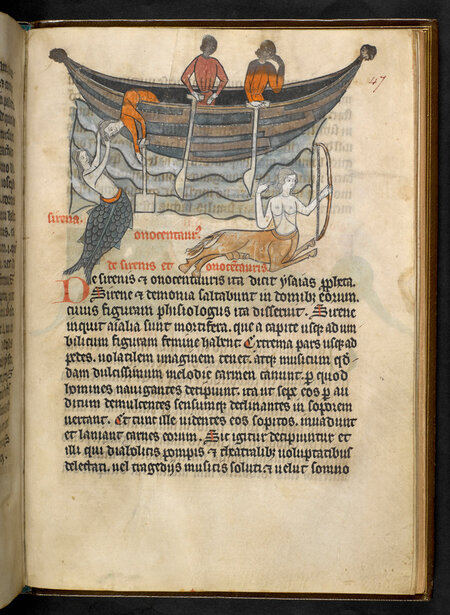 47
sirena.
onocentaurꝰ
de sirenis et onocētauris
De sirenis & onocentauris ita dicit ysaias ꝓpheta.
Sirene & demonia saltabunt in domibꝫ eorum.
cuius figuram phisiologus ita disseruit. Sirene
inquit aīalia sunt mortifera. que a capite usqꝫ ad um
bilicum figuram femine habent. Extrema pars usqꝫ ad
pedes. uolatilem imaginem tenet. atqꝫ musicum qͦd
dam dulcissimum melodie carmen canunt. ꝑ quod
homines nauigantes decipiunt. ita ut sepe eos ꝑ au
ditum demulcentes sensumqꝫ declinantes in soporem
uertant. Et tunc ille uidentes eos sopitos. inuadunt
et laniant carnes eorum. Sic igitur decipiuntur et
illi qui diabolicis pompis & theatralibꝫ uoluptatibus
delectati. uel tragedijs musicis soluti & uelut somno